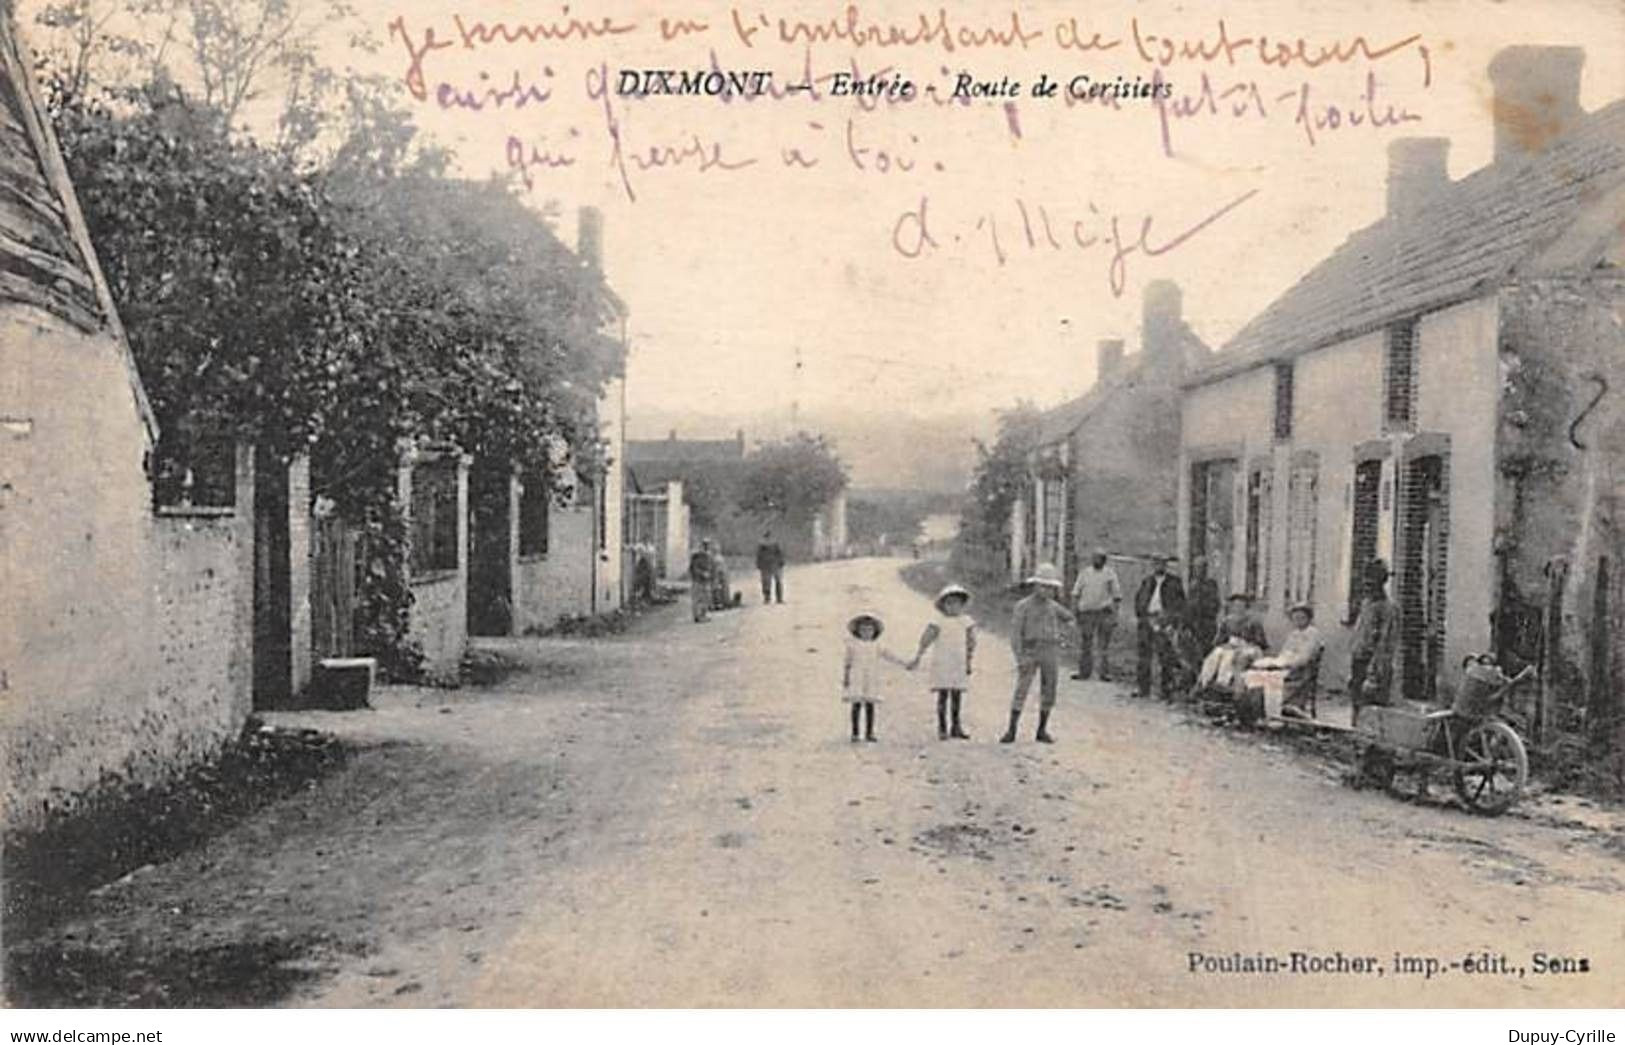 Je termine en t'embrassant de tout coeur,
DIXMONT — Entrée - Route de Cerisiers
ainsi que tout trois, petit poilu
qui pense à toi.
Poulain-Rocher, imp.-édit., Sens
www.delcampe.net
Dupuy-Cyrille